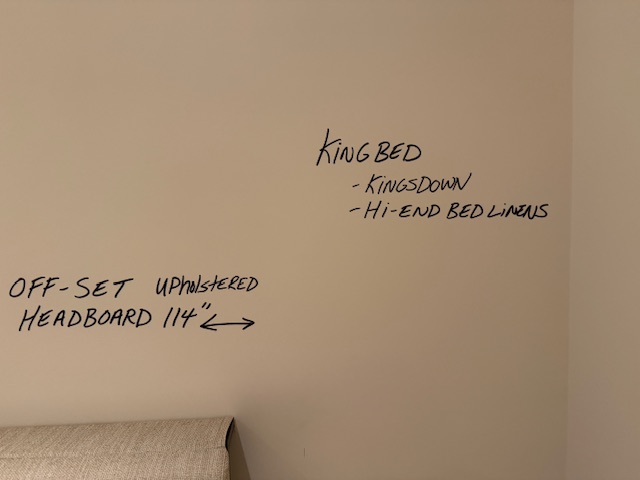 KiNG BED
- KiNGSDOWN
- Hi-END BED LiNENS
OFF-SET UPholstERED
HEADBOARD 114" ↔